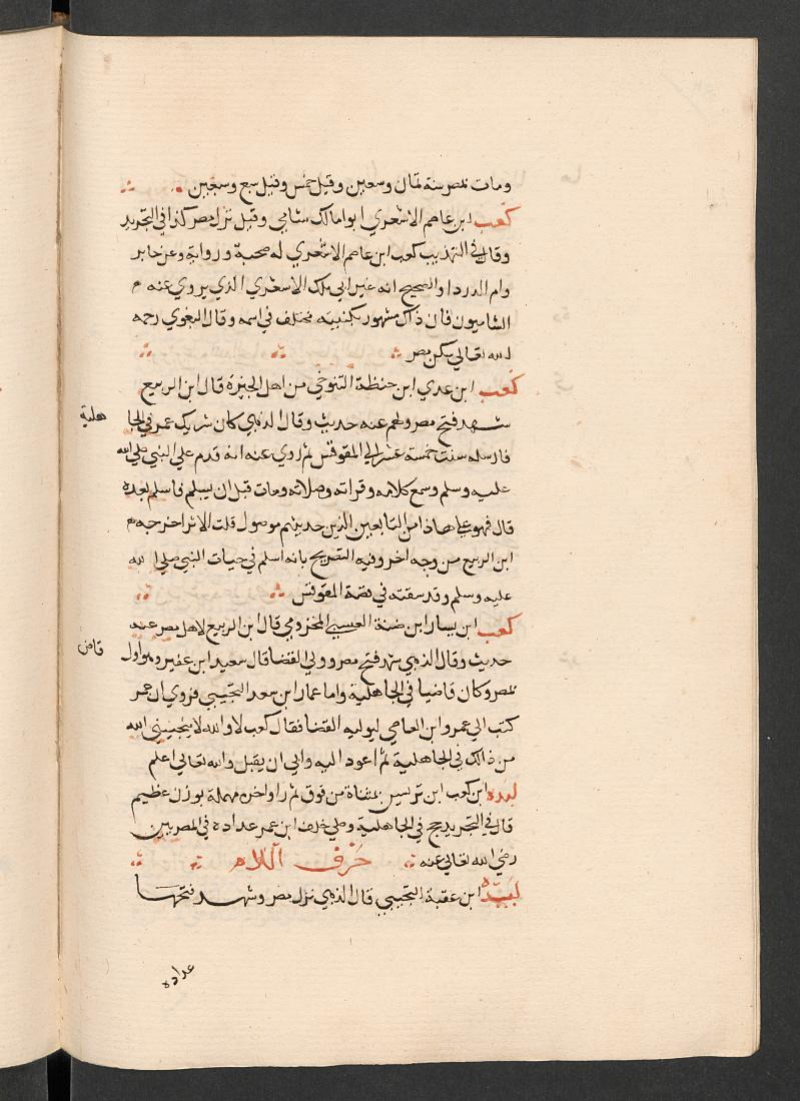 ومات بمصر سنة ثمان وسبعين وقيل خمس وقيل سبع وسبعين
كعب ابن عاصم الاشعري ابو امالك شامي وقيل نزل مصر كذا في التجريد
وقال في التهذيب كعب ابن عاصم الاشعري له صحبة ورواية وعن جابر
وام الدردا والصحيح انه غير ابي ملك الاشعري الذي يروي عنه م
الشاميون فان ذاك مشهور بكنيته مختلف في اسمه وقال البغوي رحمه
الله تعالى سكن مصر
كعب ابن عدي ابن حنظة التنوخي من اهل الجيزة قال ابن الربيع
شهد فتح مصر ولهم عنه حديث وقال الذهبي كان شريك عمر في الجا
هلية
فارسله سنت خمسة عشر الى المقوقس ثم روي عنه انه قدم علي النبي صلى الله
عليه وسلم وسمع كلامه وقراته وصلاته ومات قبل ان يسلم فاسلم بعده
قال فهو علي هاذا من التابعين الذين حديثهم موصول قلت الاثر اخرجه م
ابن الربيع من وجه اخر وفيه التصريح بانه اسلم في حيات النبي صلي الله
عليه وسلم وقد سقته في قصة المقوقس
كعب ابن يسار ابن ضنة العبسي المخزومي قال ابن الربيع لاهل مصر عنه
حديث وقال الذهبي شهد فتح مصر وولي القضا قال سعيد ابن عفير وهو اول
قاض
بمصر وكان قاضيا في الجاهلية واما عمار ابن سعد التجيبي فروي ان عمر
كتب الي عمرو ابن العاصي ليوليه القضا فقال كعب لا والله لا ينجيني الله
من ذالك في الجاهلية ثم اعود اليه وابي ان يقبل والله تعالي اعلم
لبده ابن كعب ابن تريس بمثناة من فوق ثم را واخره مهملة بوزن عظيم
قال في التجريد حج في الجاهلية وصلي خلف ابن عمر عداده في المصريين
رضي الله تعالي عنه حرف اللام
لبيده ابن عقبة التجيبي قال الذهبي نزل مصر وشهد فتحها
عداده